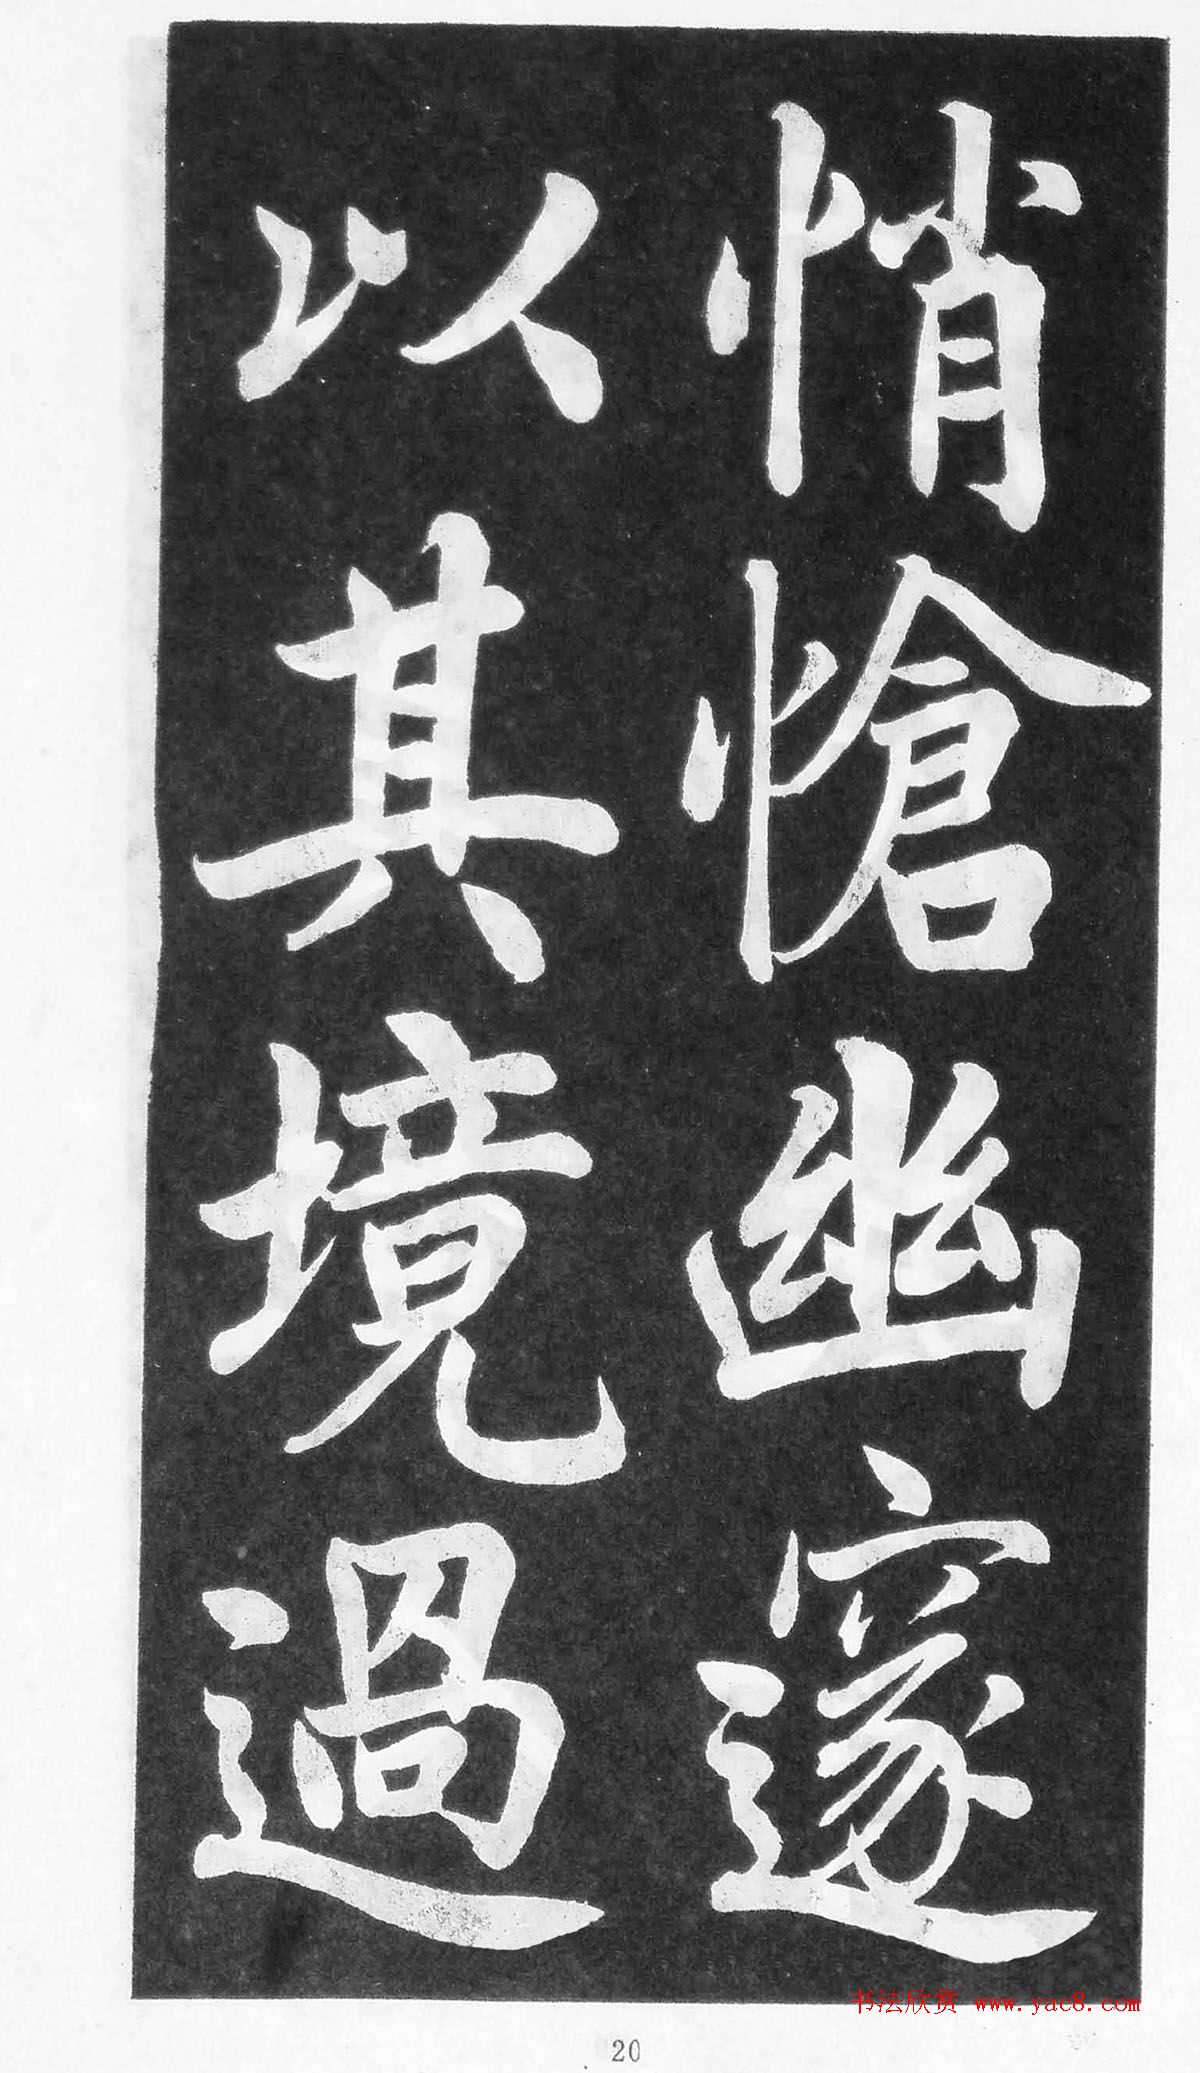 悄愴幽邃
以其境過
书法欣赏 www.yac8.com
20